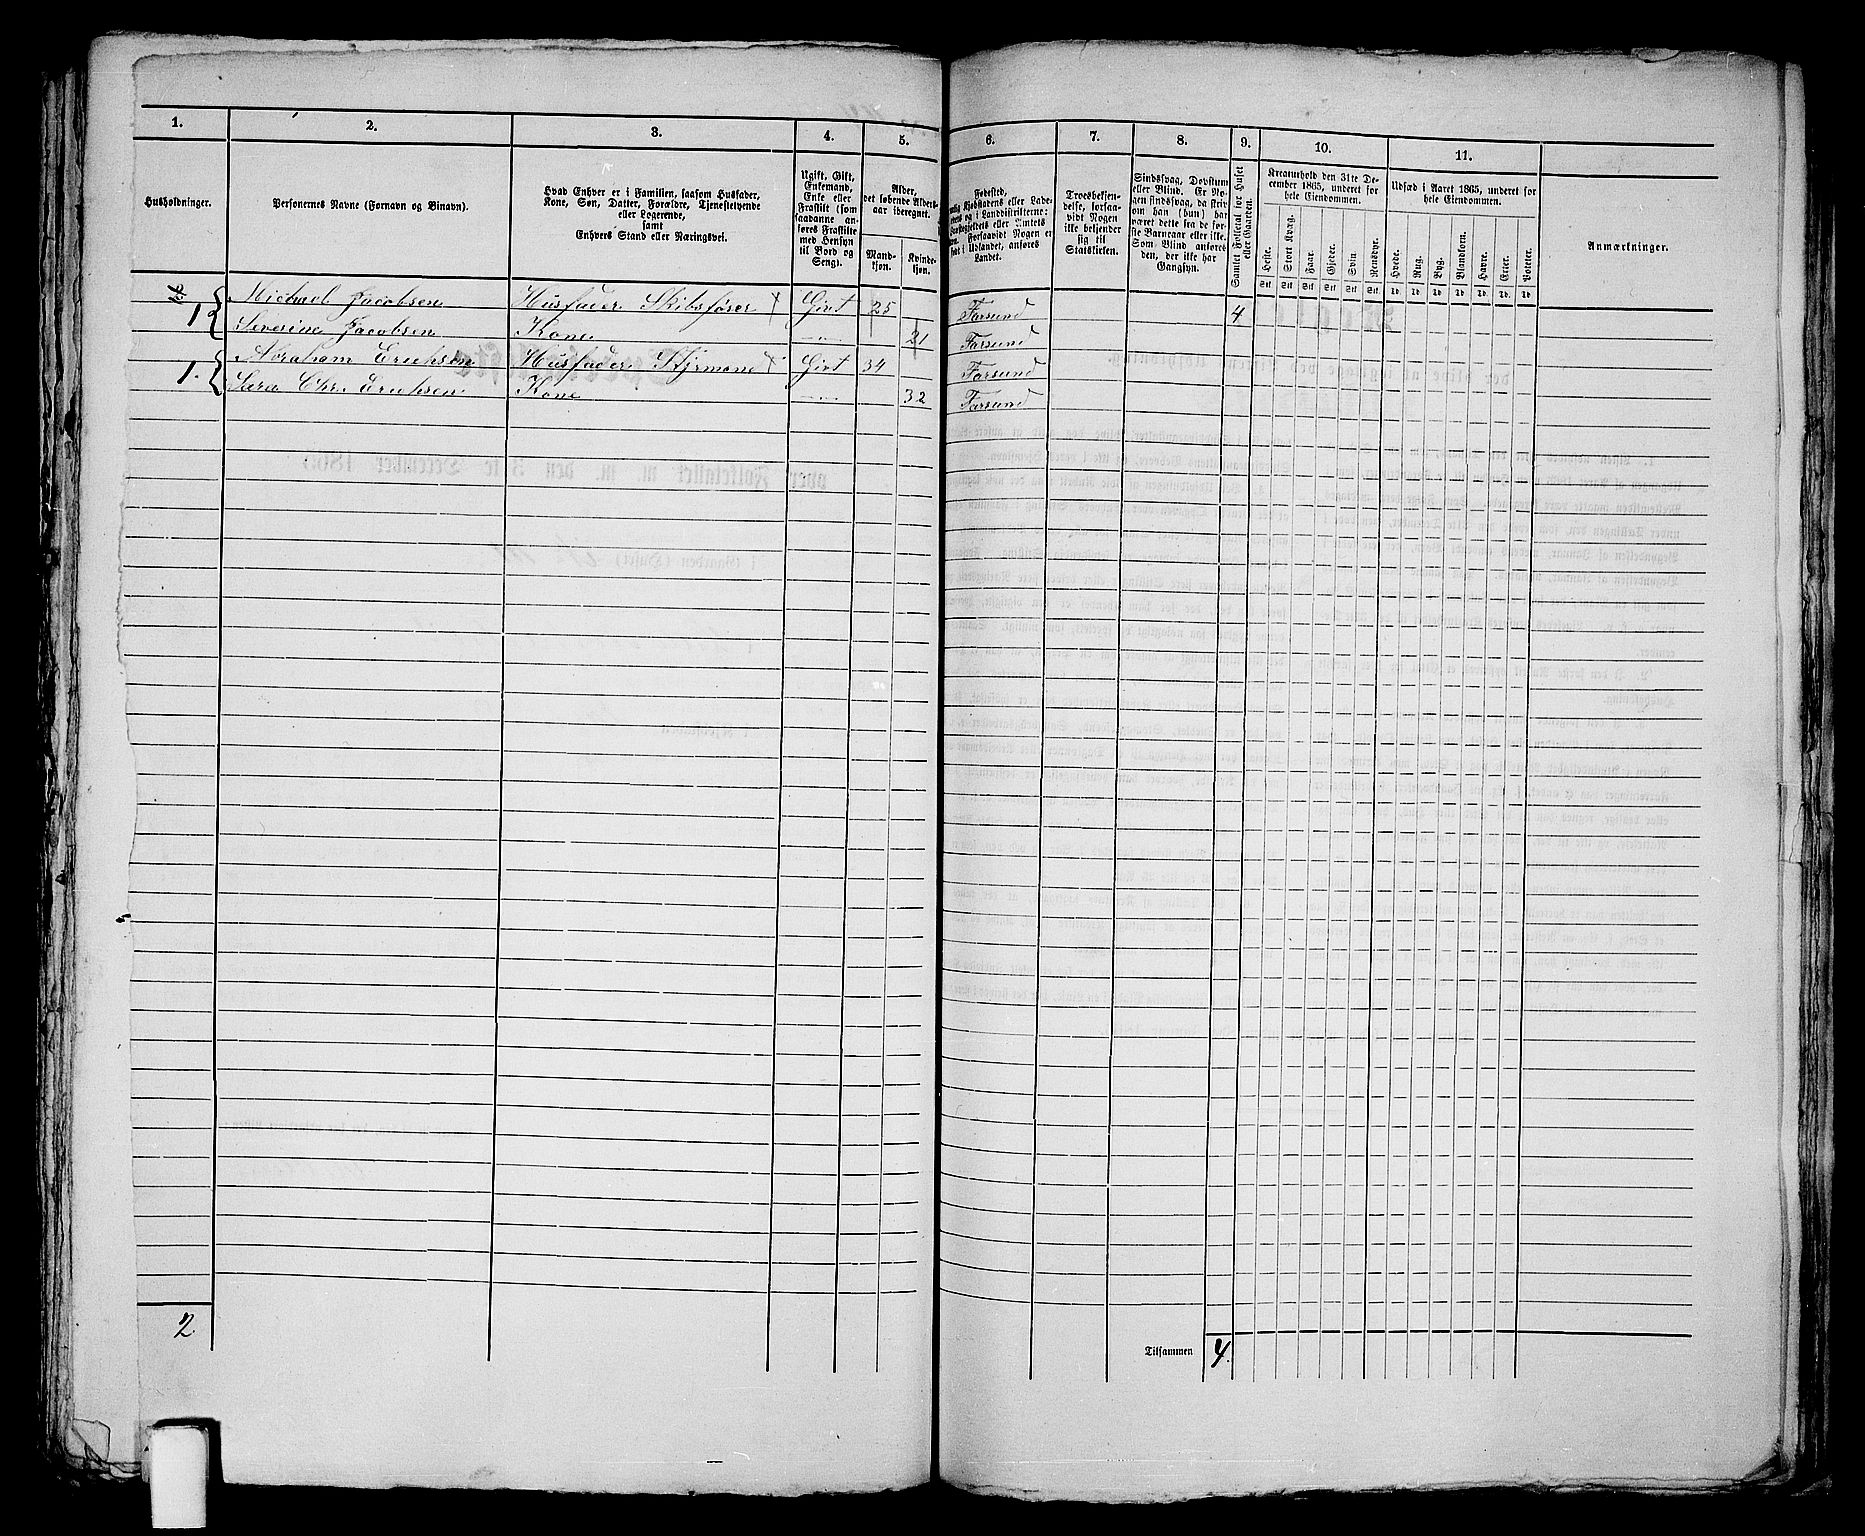 1. 2. 3. 4. 5. 6. 7. 8. 9. 10. 11.
Husholdninger.
Personernes Navne (Fornavn og Binavn).
Hvad Enhver er i Familien, saasom Husfader,
Kone, Søn, Datter, Forældre, Tjenestetyende
eller Logerende,
samt
Enhvers Stand eller Næringsvei.
Ugift, Gift,
Enkemand,
Enke eller
Fraskilt (som
saadanne an-
føres Fraskilte
med Hensyn
til Bord og
Seng).
Alder,
det løbende Alders-
aar iberegnet.
Mand-
kjøn.
Kvinde-
kjøn.
Fødested,
Kjøbstadens eller Lade-
og i Landdistrikterne:
eller Amtets
Forsaavidt Nogen er
født i Udlandet, anføres
Landet.
Troesbekjen-
delse, forsaa-
vidt Nogen
ikke bekjender
sig til
Statskirken.
Sindssvag, Døvstum
eller Blind. Er No-
gen sindssvag, da skriv
om han (hun) har
været dette fra de før-
ste Barneaar eller ikke.
Som Blind anføres
den, der ikke har
Gangsyn.
Samlet Folketal for Huset
eller Gaarden.
Kreaturhold den 31te De-
cember 1865, underet for
hele Eiendommen.
Heste. Stort Kvæg. Faar. Gjeder. Svin. Rensdyr.
Stk. Stk. Stk. Stk. Stk. Stk.
Udsæd i Aaret 1865, underet for
hele Eiendommen.
Hvede. Rug. Byg. Blandkorn. Havre. Erter. Poteter.
Td. Td. Td. Td. Td. Td. Td.
Anmærkninger.
1 Michael Jacobsen Husfader Skibsfører Givt 25 Farsund 4
Severine Jacobsen Kone 21 Farsund
1. Abraham Erichsen Husfader Styrmand Givt 34 Farsund
Sara Chr. Erichsen Kone 32 Farsund
2 Tilsammen 4.